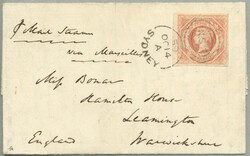 p Mail Steamer
via Marseilles
SYDNEY
A
OC 14
Miss Bomar
Hamilton House
Leamington
Warwickshire
England